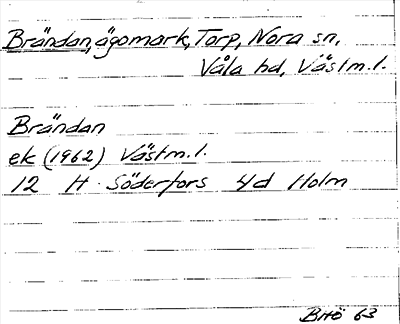 Brändan, ägomark, Torp, Nora sn,
Våla hd, Västm.l.
Brändan
ek (1962) Västm.l.
12 H Söderfors 4d Holm
BHö 63